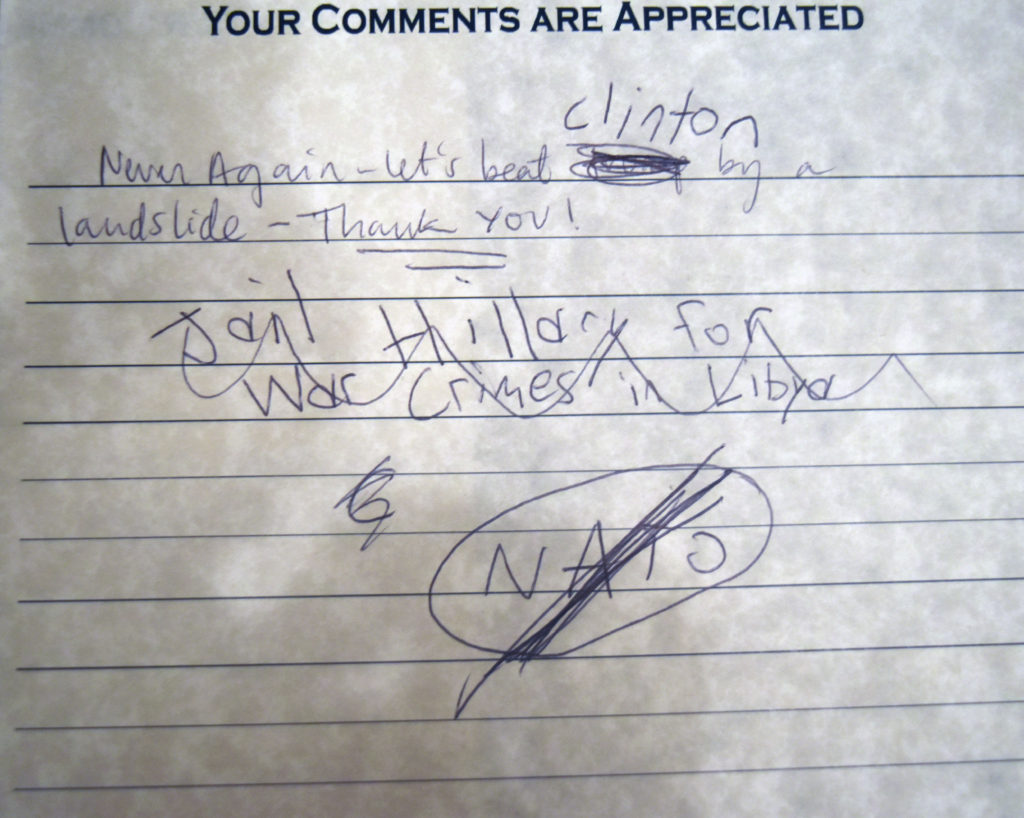 YOUR COMMENTS ARE APPRECIATED
clinton
Never Again - let's beat by a
landslide - Thank YOU!
Jail Hillary for
War Crimes in Libya
NATO